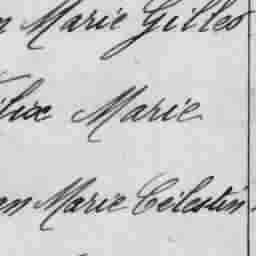 n Marie Gilles
lix Marie
an Marie Célestin